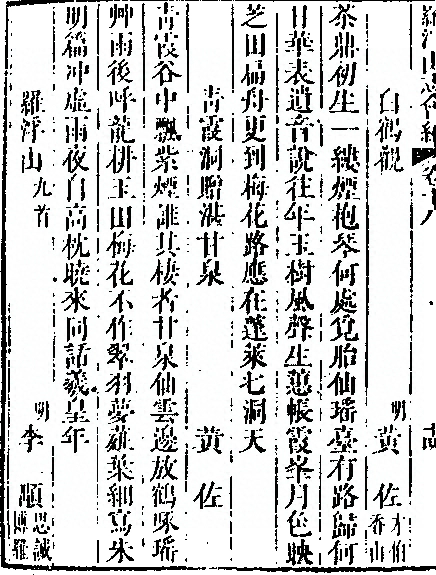 羅浮山志會編 卷十八
白鶴觀 明 黃佐 才伯 香山
茶鼎初生一縷煙抱琴何處覓胎仙瑤臺有路歸何
日華表遺音說往年玉樹風聲生蕙帳霞峯月色映
芝田扁舟更到梅花路應在蓬萊七洞天
青霞洞贈湛甘泉 黃佐
青霞谷中飄紫煙誰其棲者甘泉仙雲邊放鶴啄瑤
艸雨後呼龍耕玉田梅花不作翠羽夢蕋葉細寫朱
明篇冲虛雨夜自高枕曉來同話羲皇年
羅浮山 九首 明 李順 思誠 博羅